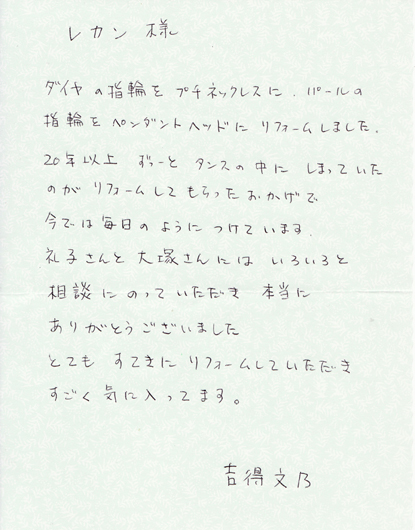 レカン 様
ダイヤの指輪を プチネックレスに、パールの
指輪を ペンダントヘッドに リフォームしました.
20年以上 ずーっと タンスの中に しまっていた
のが リフォームして もらった おかげで
今では毎日のように つけています.
礼子さんと 大塚さんには いろいろと
相談にのっていただき 本当に
ありがとうございました
とても すてきに リフォームしていただき
すごく気に入ってます。
吉得文乃